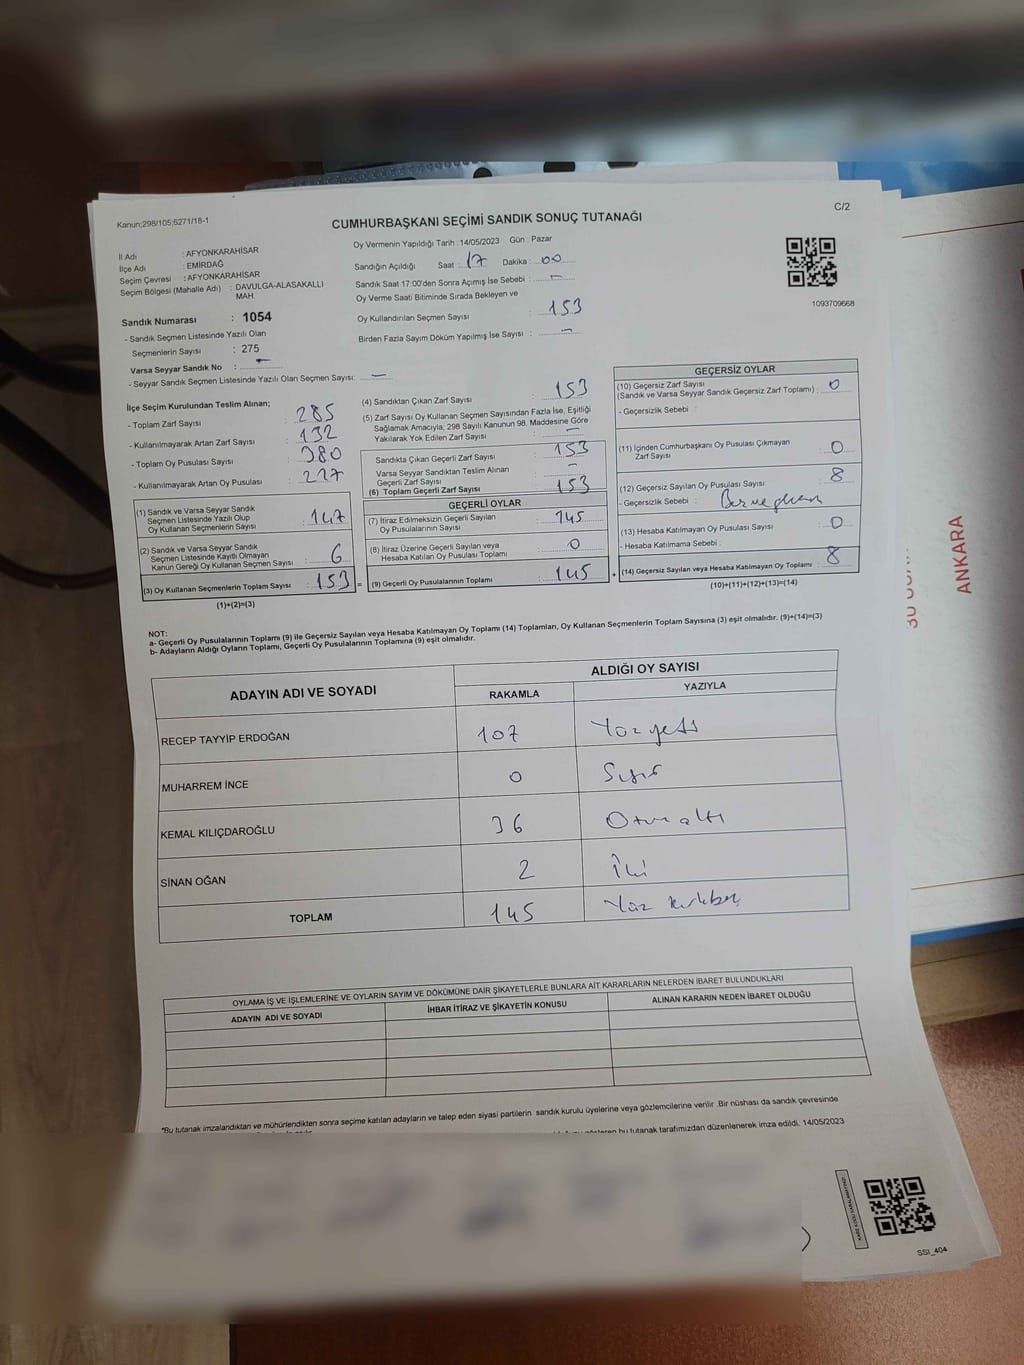 Kanun;298/105;6271/18-1
CUMHURBAŞKANI SEÇİMİ SANDIK SONUÇ TUTANAĞI
C/2
İl Adı : AFYONKARAHİSAR
İlçe Adı : EMİRDAĞ
Seçim Çevresi : AFYONKARAHİSAR
Seçim Bölgesi (Mahalle Adı) : DAVULGA-ALASAKALLI MAH.
Sandık Numarası : 1054
- Sandık Seçmen Listesinde Yazılı Olan
Seçmenlerin Sayısı : 275
Varsa Seyyar Sandık No : -
- Seyyar Sandık Seçmen Listesinde Yazılı Olan Seçmen Sayısı: -
Oy Vermenin Yapıldığı Tarih : 14/05/2023 Gün : Pazar
Sandığın Açıldığı Saat : 17 Dakika : 00
Sandık Saat 17:00'den Sonra Açımış İse Sebebi : -
Oy Verme Saati Bitiminde Sırada Bekleyen ve
Oy Kullandırılan Seçmen Sayısı : 153
Birden Fazla Sayım Döküm Yapılmış İse Sayısı : -
1093709668
İlçe Seçim Kurulundan Teslim Alınan;
- Toplam Zarf Sayısı : 285
- Kullanılmayarak Artan Zarf Sayısı : 132
- Toplam Oy Pusulası Sayısı : 380
- Kullanılmayarak Artan Oy Pusulası : 227
(1) Sandık ve Varsa Seyyar Sandık
Seçmen Listesinde Yazılı Olup
Oy Kullanan Seçmenlerin Sayısı : 147
(2) Sandık ve Varsa Seyyar Sandık
Seçmen Listesinde Kayıtlı Olmayan
Kanun Gereği Oy Kullanan Seçmen Sayısı : 6
(3) Oy Kullanan Seçmenlerin Toplam Sayısı : 153
(1)+(2)=(3)
(4) Sandıktan Çıkan Zarf Sayısı : 153
(5) Zarf Sayısı Oy Kullanan Seçmen Sayısından Fazla İse, Eşitliği
Sağlamak Amacıyla; 298 Sayılı Kanunun 98. Maddesine Göre
Yakılarak Yok Edilen Zarf Sayısı : -
Sandıkta Çıkan Geçerli Zarf Sayısı : 153
Varsa Seyyar Sandıktan Teslim Alınan
Geçerli Zarf Sayısı : -
(6) Toplam Geçerli Zarf Sayısı : 153
GEÇERLİ OYLAR
(7) İtiraz Edilmeksizin Geçerli Sayılan
Oy Pusulalarının Sayısı : 145
(8) İtiraz Üzerine Geçerli Sayılan veya
Hesaba Katılan Oy Pusulası Toplamı : 0
= (9) Geçerli Oy Pusulalarının Toplamı : 145
GEÇERSİZ OYLAR
(10) Geçersiz Zarf Sayısı
(Sandık ve Varsa Seyyar Sandık Geçersiz Zarf Toplamı) : 0
- Geçersizlik Sebebi :
(11) İçinden Cumhurbaşkanı Oy Pusulası Çıkmayan
Zarf Sayısı : 0
(12) Geçersiz Sayılan Oy Pusulası Sayısı : 8
- Geçersizlik Sebebi :
(13) Hesaba Katılmayan Oy Pusulası Sayısı : 0
- Hesaba Katılmama Sebebi :
+ (14) Geçersiz Sayılan veya Hesaba Katılmayan Oy Toplamı : 8
(10)+(11)+(12)+(13)=(14)
NOT:
a- Geçerli Oy Pusulalarının Toplamı (9) ile Geçersiz Sayılan veya Hesaba Katılmayan Oy Toplamı (14) Toplamları, Oy Kullanan Seçmenlerin Toplam Sayısına (3) eşit olmalıdır. (9)+(14)=(3)
b- Adayların Aldığı Oyların Toplamı, Geçerli Oy Pusulalarının Toplamına (9) eşit olmalıdır.
ADAYIN ADI VE SOYADI
ALDIĞI OY SAYISI
RAKAMLA YAZIYLA
RECEP TAYYİP ERDOĞAN 107 Yüzyedi
MUHARREM İNCE 0 Sıfır
KEMAL KILIÇDAROĞLU 36 Otuzaltı
SİNAN OĞAN 2 İki
TOPLAM 145 Yüz kırkbeş
OYLAMA İŞ VE İŞLEMLERİNE VE OYLARIN SAYIM VE DÖKÜMÜNE DAİR ŞİKAYETLERLE BUNLARA AİT KARARLARIN NELERDEN İBARET BULUNDUKLARI
ADAYIN ADI VE SOYADI İHBAR İTİRAZ VE ŞİKAYETİN KONUSU ALINAN KARARIN NEDEN İBARET OLDUĞU
*Bu tutanak imzalandıktan ve mühürlendikten sonra seçime katılan adayların ve talep eden siyasi partilerin sandık kurulu üyelerine veya gözlemcilerine verilir .Bir nüshası da sandık çevresinde
bu tutanak tarafımızdan düzenlenerek imza edildi. 14/05/2023
SSI_404
ANKARA